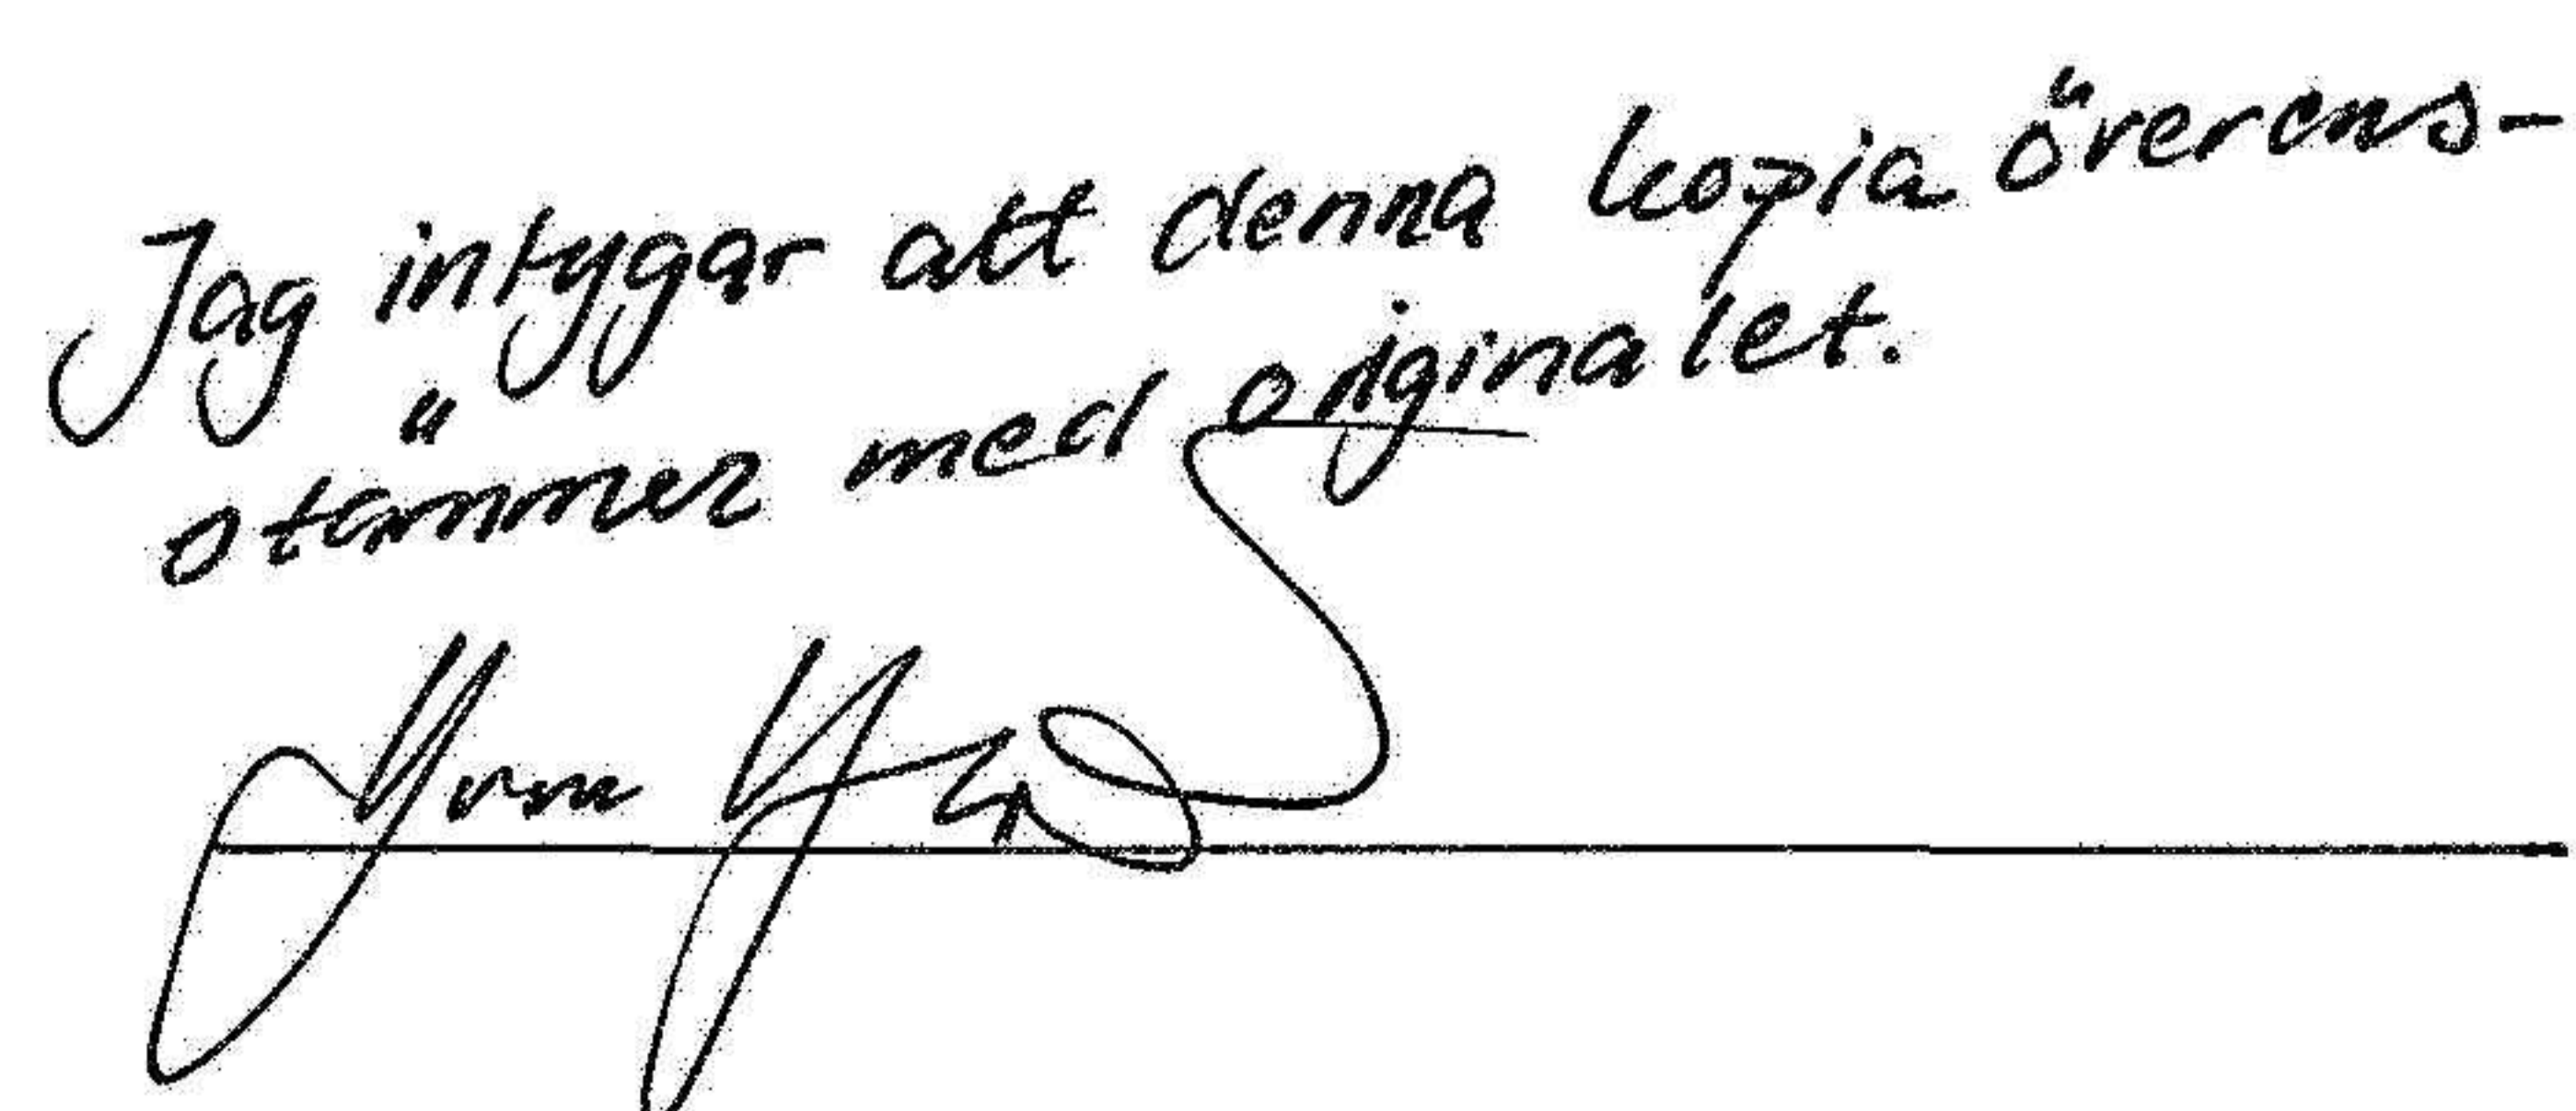 Jag intygar att denna kopia överens-
stämmer med originalet.